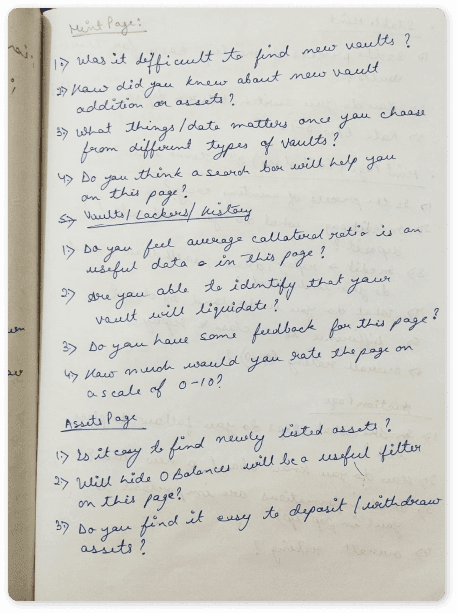 Mint Page:
1) Was it difficult to find new vaults?
2) How did you knew about new vault
addition or assets?
3) What things/data matters once you choose
from different types of vaults?
4) Do you think a search bar will help you
on this page?
5) Vaults/Lockers/History
1) Do you feel average collatral ratio is an
useful data in this page?
2) Are you able to identify that your
vault will liquidate?
3) Do you have some feedback for this page?
4) How much would you rate the page on
a scale of 0-10?
Assets Page
1) Is it easy to find newly listed assets?
2) Will hide 0 Balances will be a useful filter
on this page?
3) Do you find it easy to deposit/withdraw
assets?